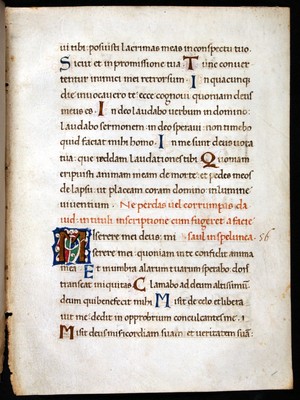 ui tibi: posuisti lacrimas meas inconspectu tuo.
Sicut et inpromissione tua. Tunc conver
tentur inimici mei retrorsum. In quacunq
die invocavero te: ecce cognovi quoniam deus
meus es. In deo laudabo verbum in domino
laudabo sermonem: in deo speravi: non timebo
quid faciat mihi homo. In me sunt deus vota
tua: que reddam laudationes tibi. Quoniam
eripuisti animam meam de morte: et pedes meos
de lapsu: ut placeam coram domino in lumine
viventium. Ne perdas vel corrumpas da
vid. in tituli inscriptione cum fugeret a facie
Miserere mei deus: mi saul in spelunca. 56
serere mei: quoniam in te confidit anima
mea. Et in umbra alarum tuarum sperabo: donec
transeat iniquitas. Clamabo ad deum altissimū:
deum qui benefecit mihi. Misit de celo et libera
vit me: dedit in opprobrium conculcantes me.
Misit deus misericordiam suam: et veritatem suā: